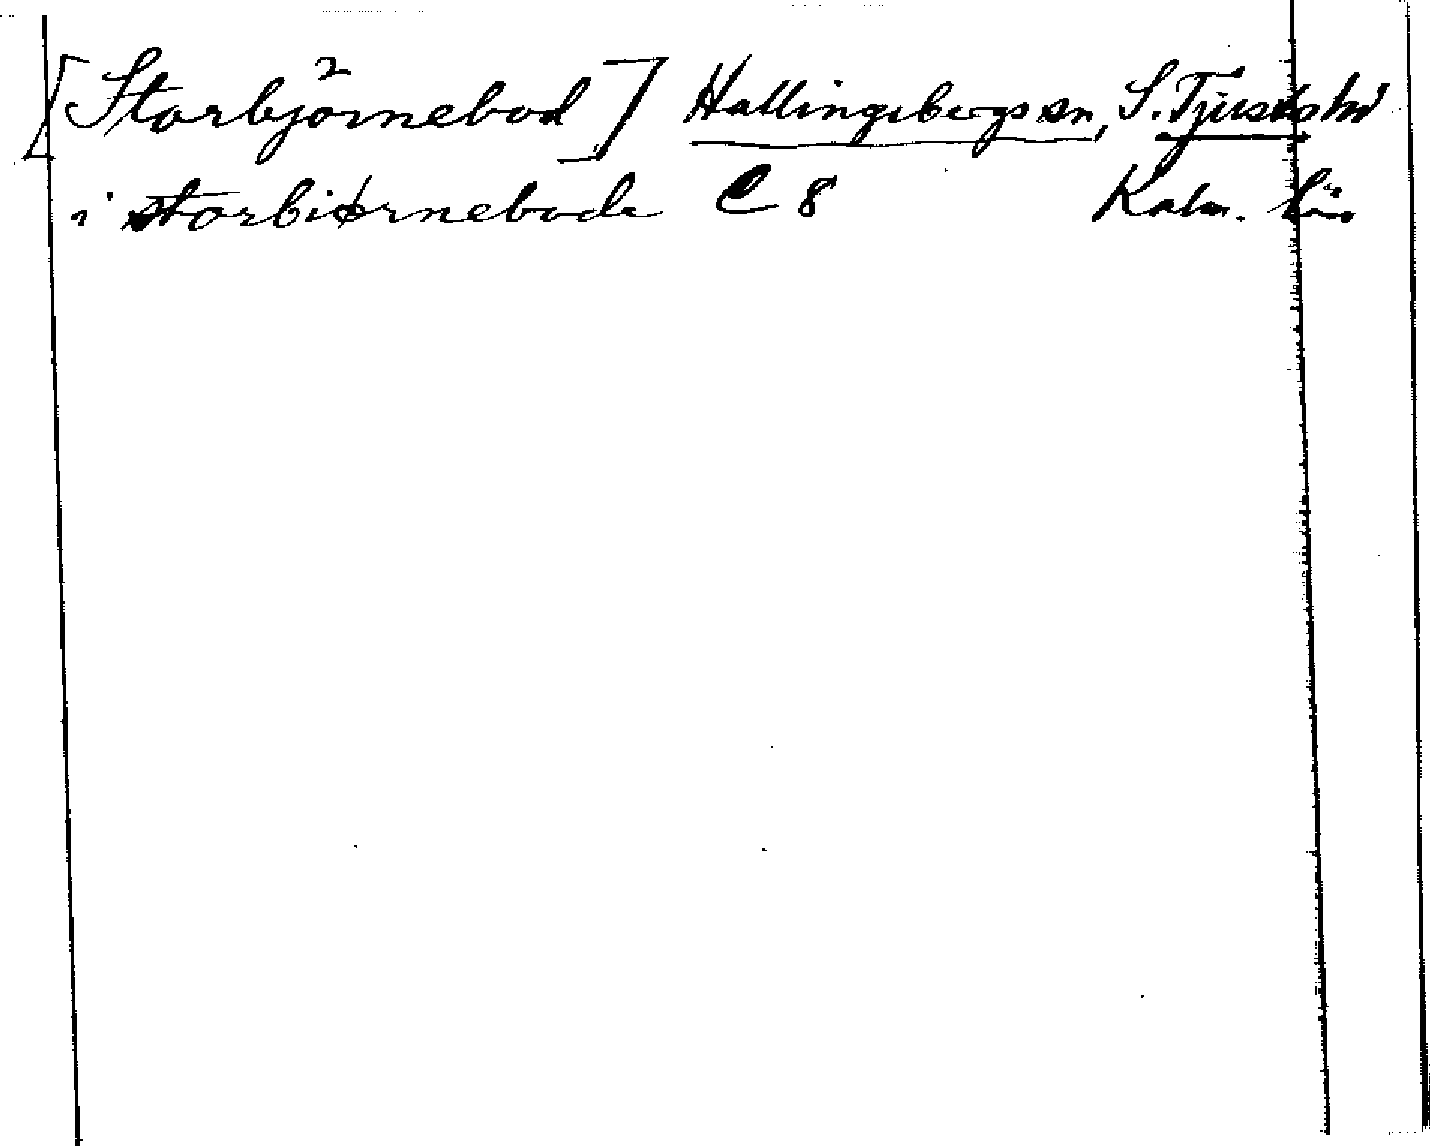 [Storbjörnebod] Hallingebergs sn, S. Tjusts hd
i storbiørnebode C 8 Kalm. län